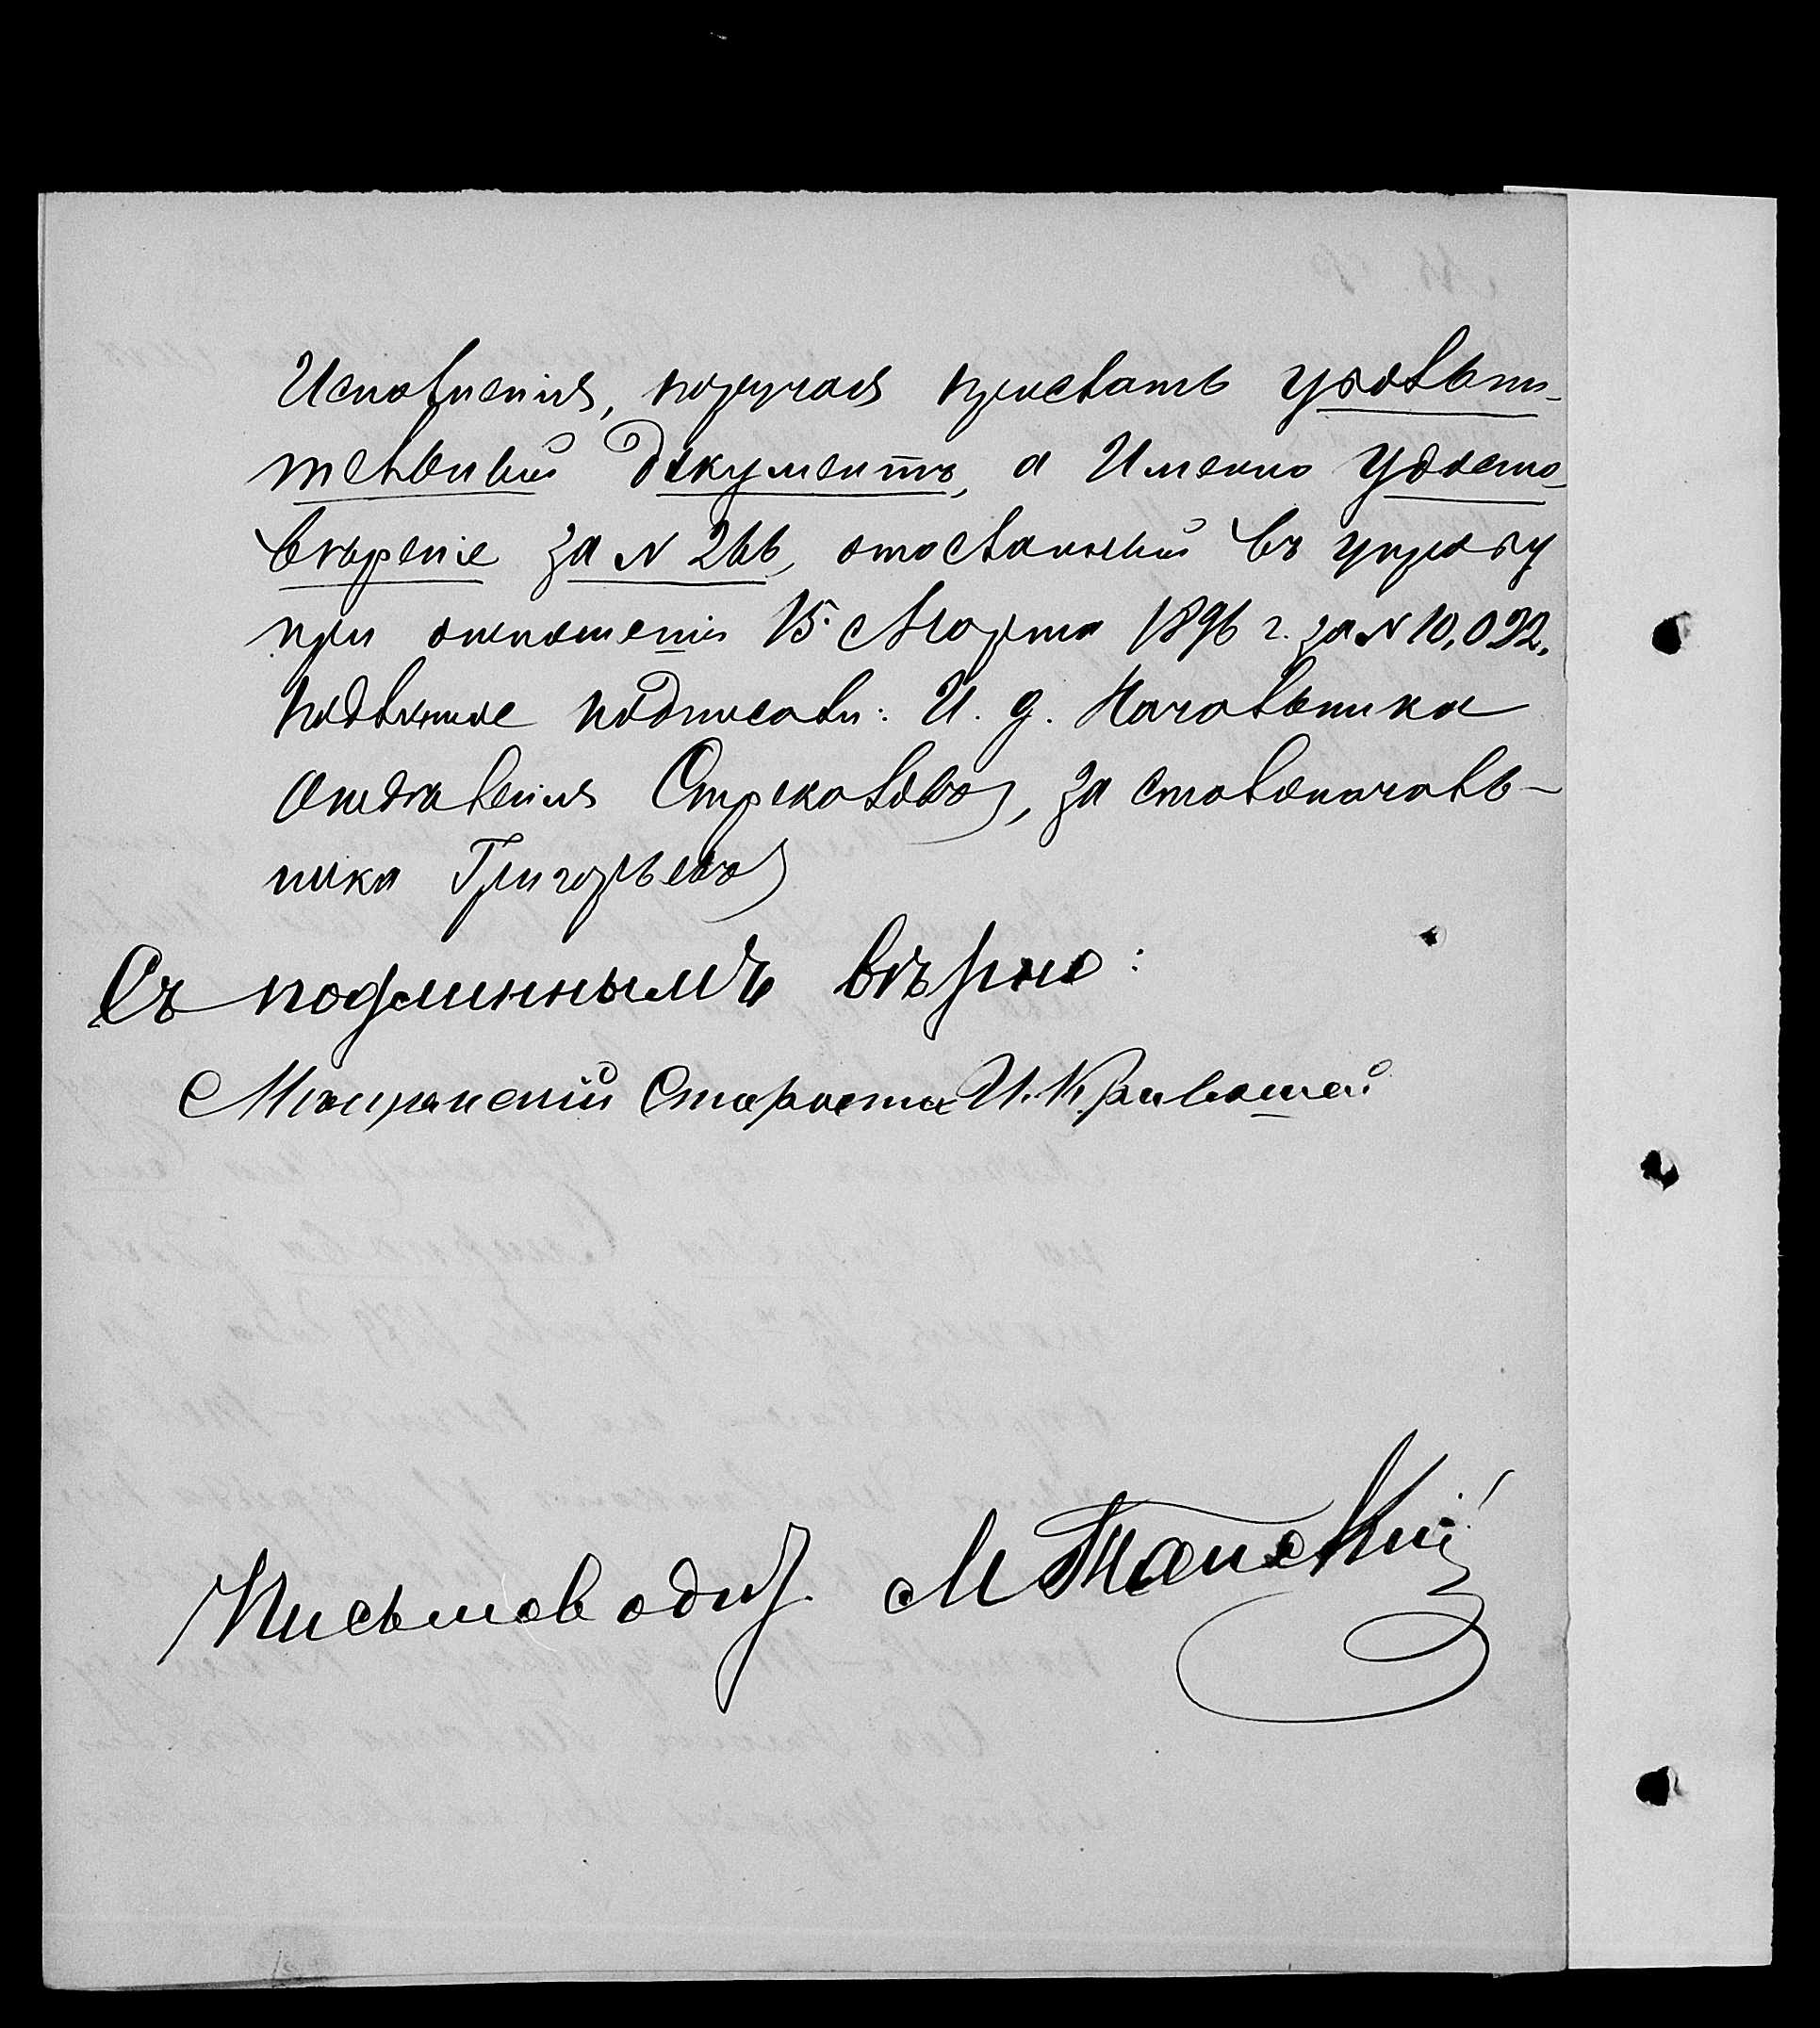 Исполненія, поручая прислать увольни-
тельный документъ, а Именно Удосто-
вѣреніе за N 266, отосланный въ управу
при отношеніи 15 Марта 1896 г. за N 10,022.
Подлинное подписали: И. д. Начальника
Отдѣленія Стрекаловъ, за столоначаль-
ника Григорьевъ
Съ подлиннымъ вѣрно:
Мѣщанскій Староста И. Кривошей
Письмоводи. М